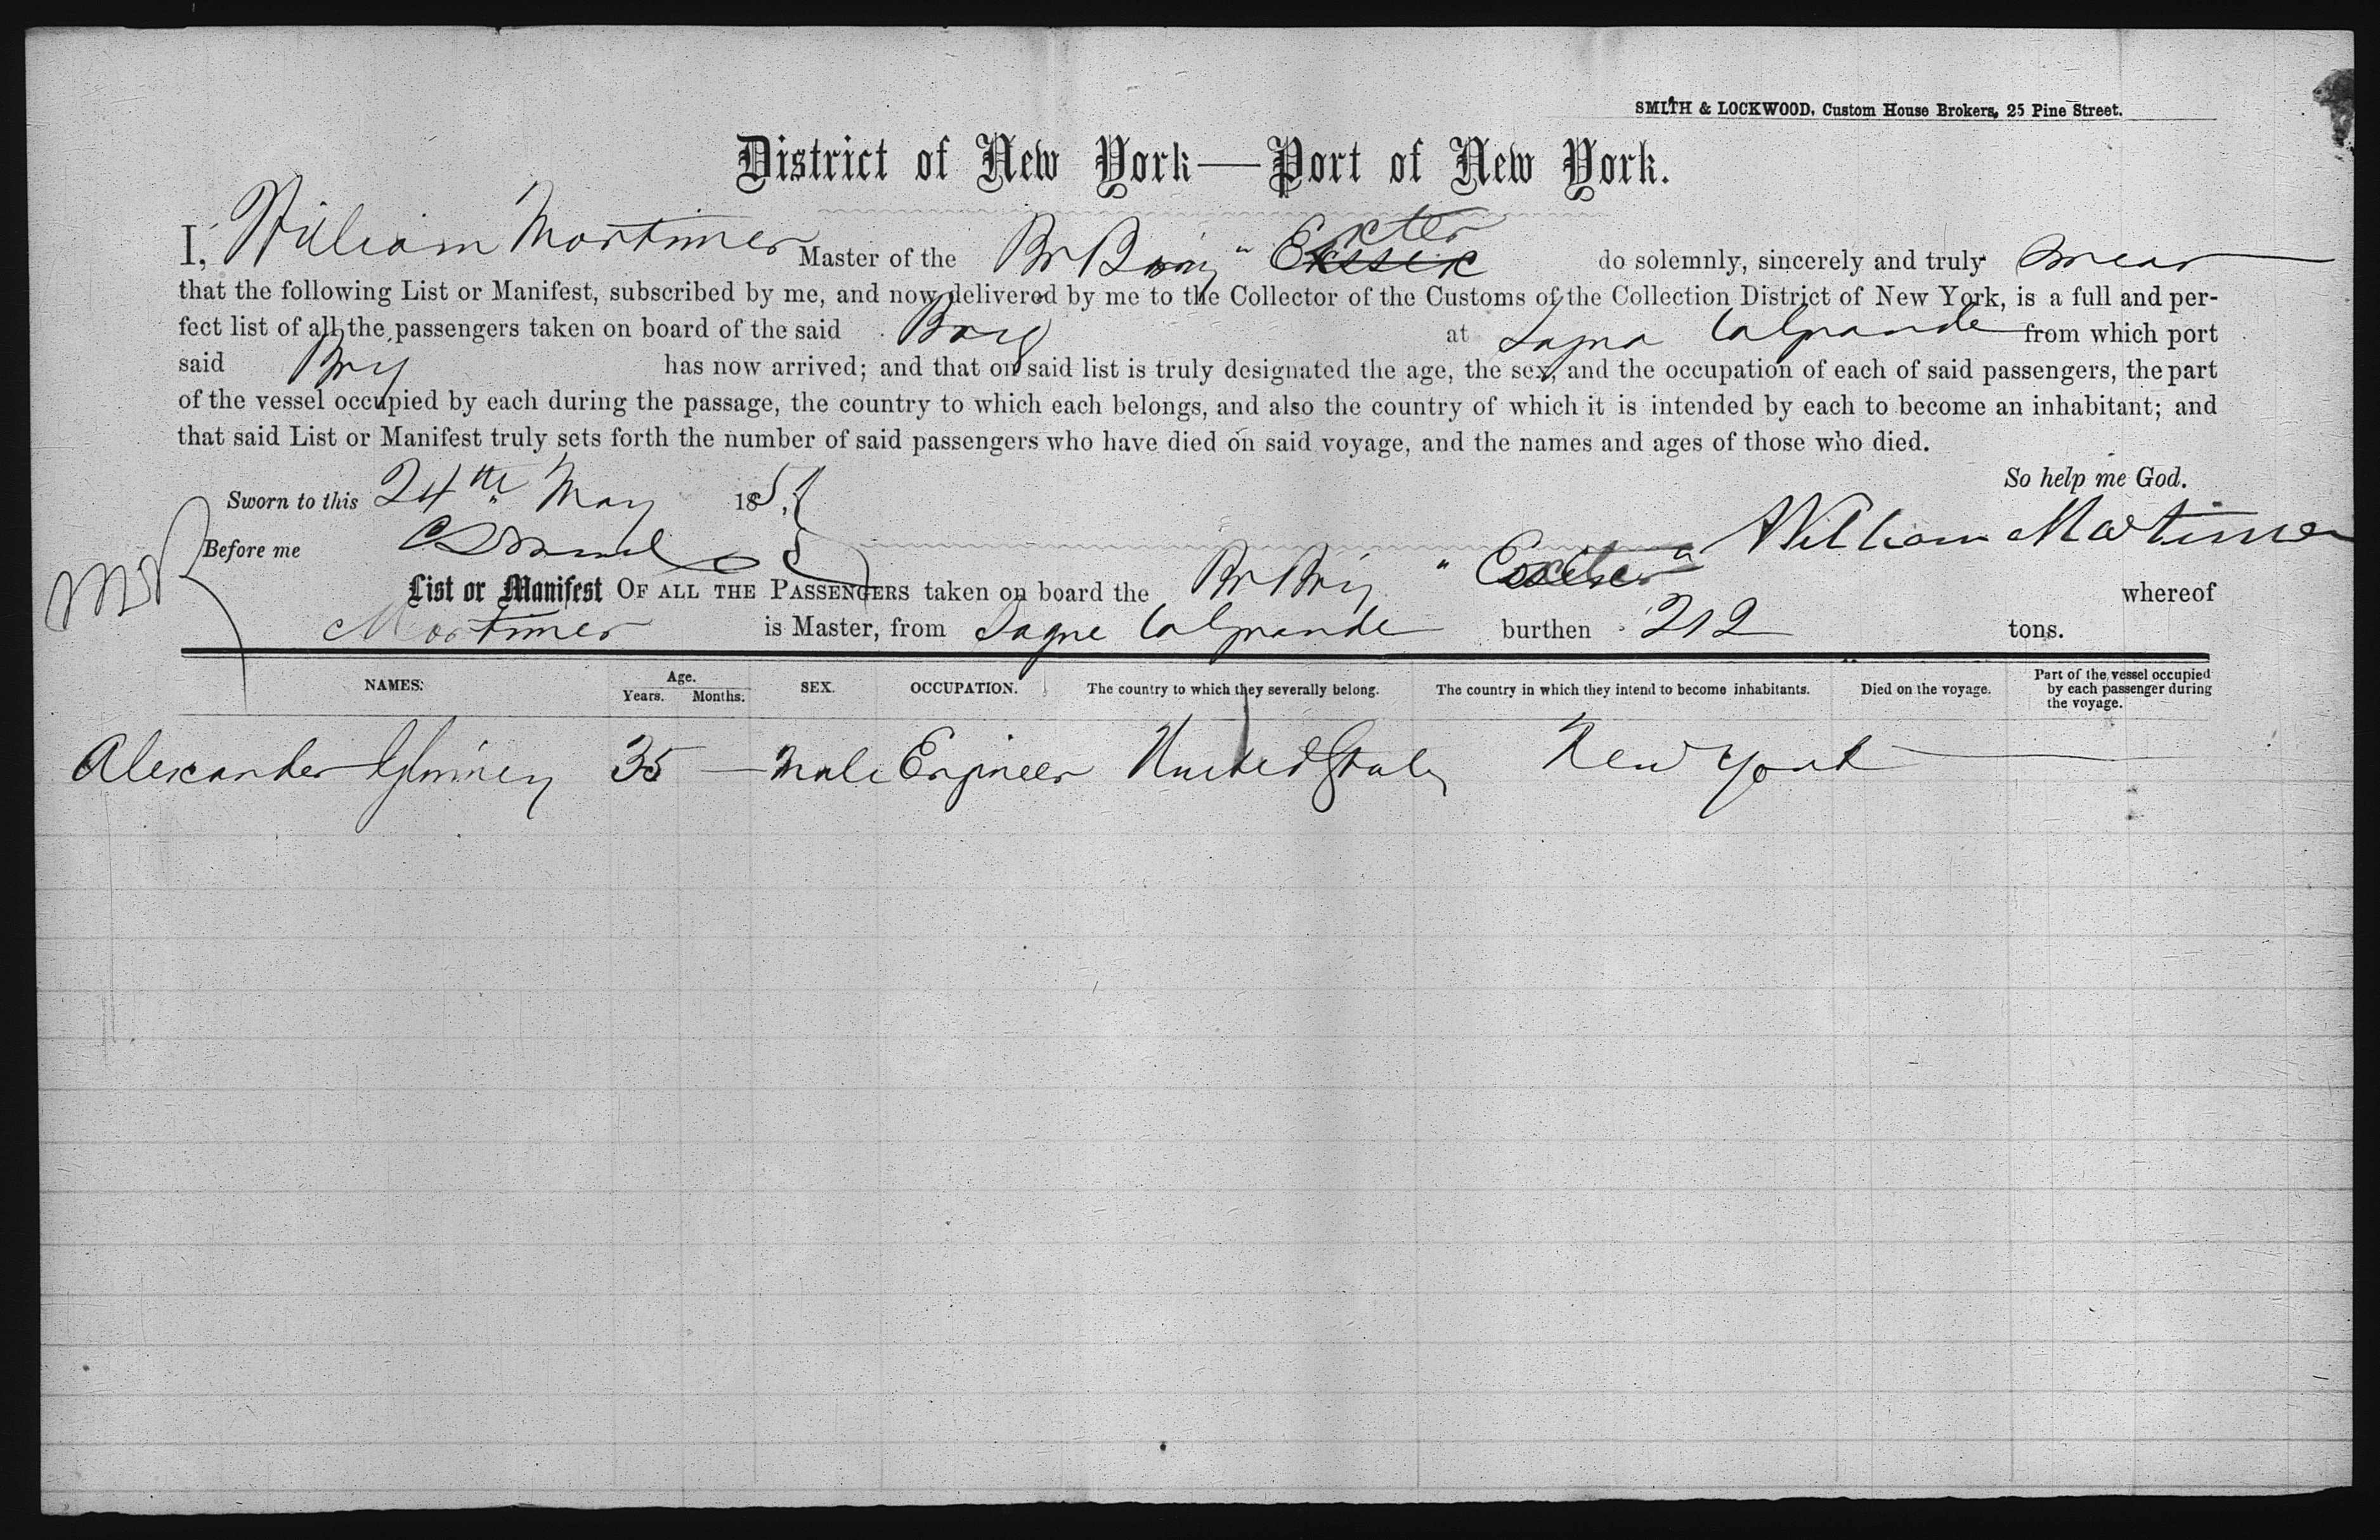 SMITH & LOCKWOOD, Custom House Brokers, 25 Pine Street.
District of New York—Port of New York.
I, William Mortimer Master of the Br Brig " Exeter do solemnly, sincerely and truly swear
that the following List or Manifest, subscribed by me, and now delivered by me to the Collector of the Customs of the Collection District of New York, is a full and per-
fect list of all the passengers taken on board of the said Brig at Sagua La Grande from which port
said Brig has now arrived; and that on said list is truly designated the age, the sex, and the occupation of each of said passengers, the part
of the vessel occupied by each during the passage, the country to which each belongs, and also the country of which it is intended by each to become an inhabitant; and
that said List or Manifest truly sets forth the number of said passengers who have died on said voyage, and the names and ages of those who died.
So help me God.
Sworn to this 24th May 185
Before me William Mortimer
List or Manifest OF ALL THE PASSENGERS taken on board the Br Brig " Exeter " whereof
Mortimer is Master, from Sagua La Grande burthen 212 tons.
NAMES. Age. Years. Months. SEX. OCCUPATION. The country to which they severally belong. The country in which they intend to become inhabitants. Died on the voyage. Part of the vessel occupied by each passenger during the voyage.
Alexander 35 — Male Engineer United States New York